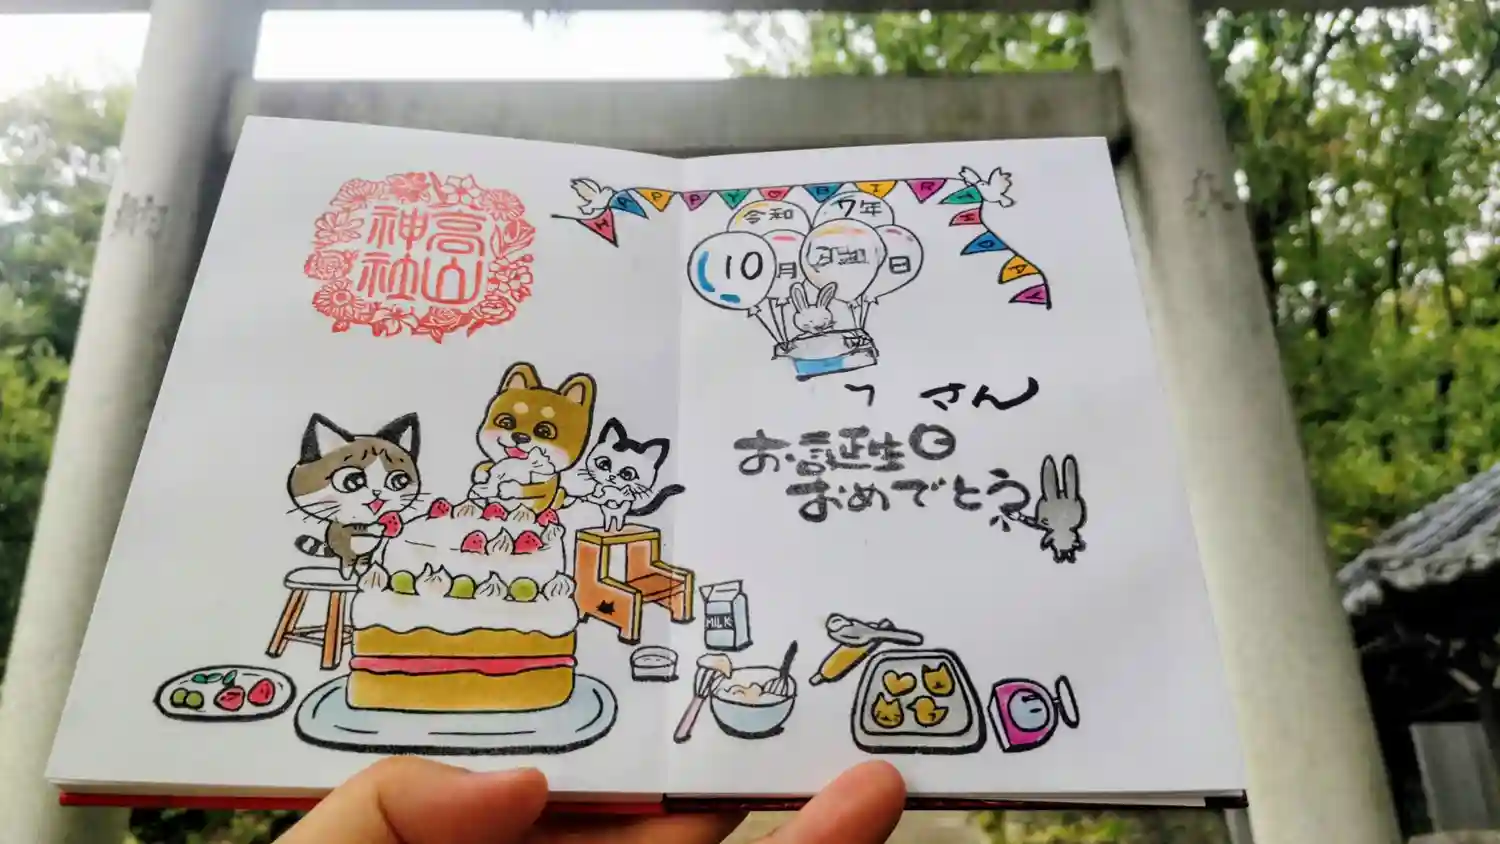 高山
神社
HAPPY BIRTHDAY
令和 7年
10月 日
さん
お誕生日
おめでとう
MILK
納